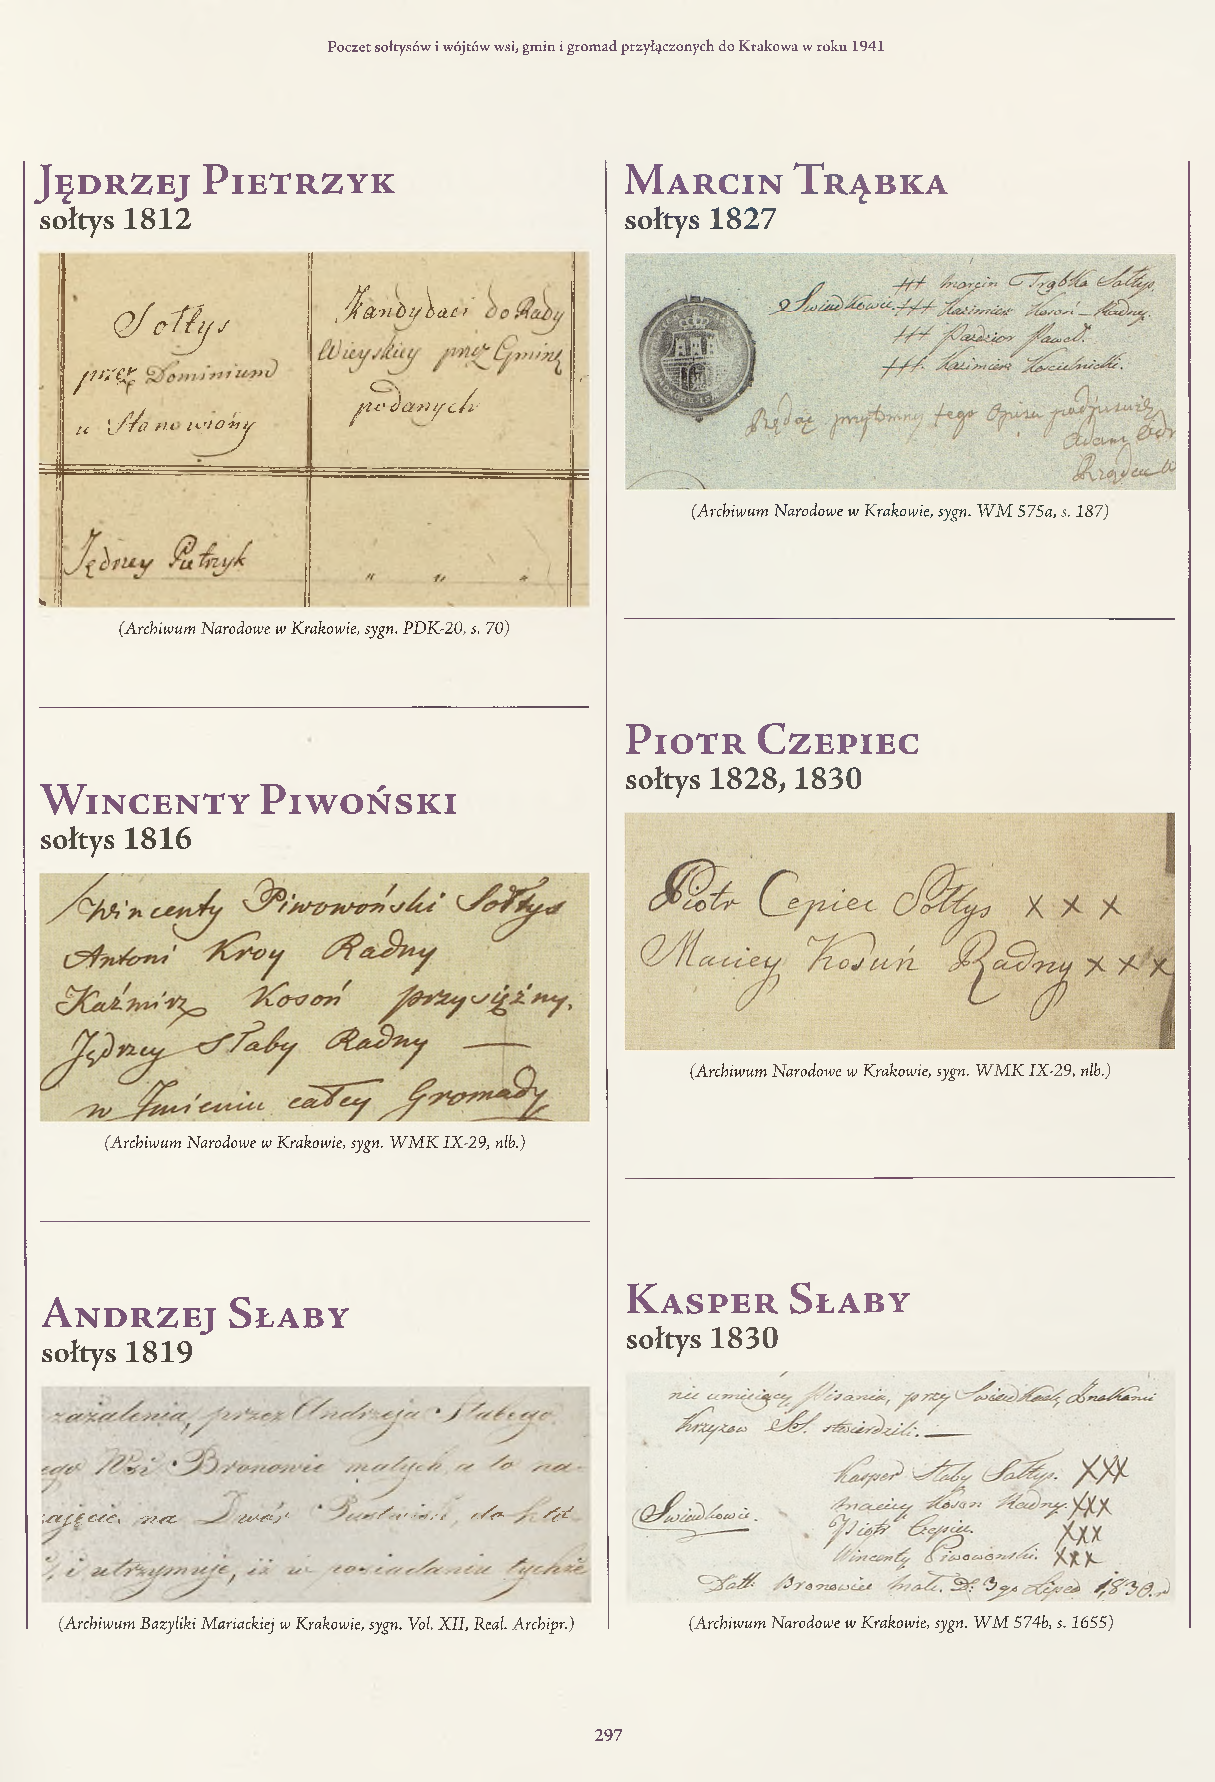 Poczet sołtysów i wójtów wsi, gmin i gromad przyłączonych do Krakowa w roku 1941
Jędrzej Pietrzyk
sołtys 1812
Sołtys
przez Dominium
u Stanowióny
Kandydaci do Rady
Wieyskiey przez Gminę
podanych
Jędrzey Pietrzyk
" " "
(Archiwum Narodowe w Krakowie, sygn. PDK-20, s. 70)
Wincenty Piwoński
sołtys 1816
Wincenty Piwowoński Sołtys
Antoni Kroy Radny
Kaźmirz Kosoń przysiężny.
Jędrzey Słaby Radny —
w Imieniu całey Gromady
(Archiwum Narodowe w Krakowie, sygn. WMK IX-29, nlb.)
Andrzej Słaby
sołtys 1819
zażalenia, przez Andrzeja Słabego
ego Wsi Bronowic małych, a to na-
zajęcie na Dwór
i utrzymuje, iż w posiadaniu tychże
(Archiwum Bazyliki Mariackiej w Krakowie, sygn. Vol. XII, Real. Archipr.)
Marcin Trąbka
sołtys 1827
Swiadkowie. +++ Marcin Trąbka Sołtys.
+++ Kazimierz Kosoń – Radny.
+++ Pazdzior Paweł.
+++. Kazimierz Koscielnicki.
Będąc przytomny tego Opisu podpisuię
Adam
(Archiwum Narodowe w Krakowie, sygn. WM 575a, s. 187)
Piotr Czepiec
sołtys 1828, 1830
Piotr Cepiec Sołtys X X X
Maciey Kosuń Radny X X X
(Archiwum Narodowe w Krakowie, sygn. WMK IX-29, nlb.)
Kasper Słaby
sołtys 1830
nie umieiący Pisania, przy Swiadkach Znakami
Krzyzow SS. stwierdzili. —
Kasper Słaby Sołtys. XXX
Swiadkowie. Maciey Koson Radny. XXX
Piotr Czepiec. XXX
Wincenty Piwowonski. XXX
Datt: Bronowice Małe. D: 3go Lipca 1830. r
(Archiwum Narodowe w Krakowie, sygn. WM 574b, s. 1655)
297